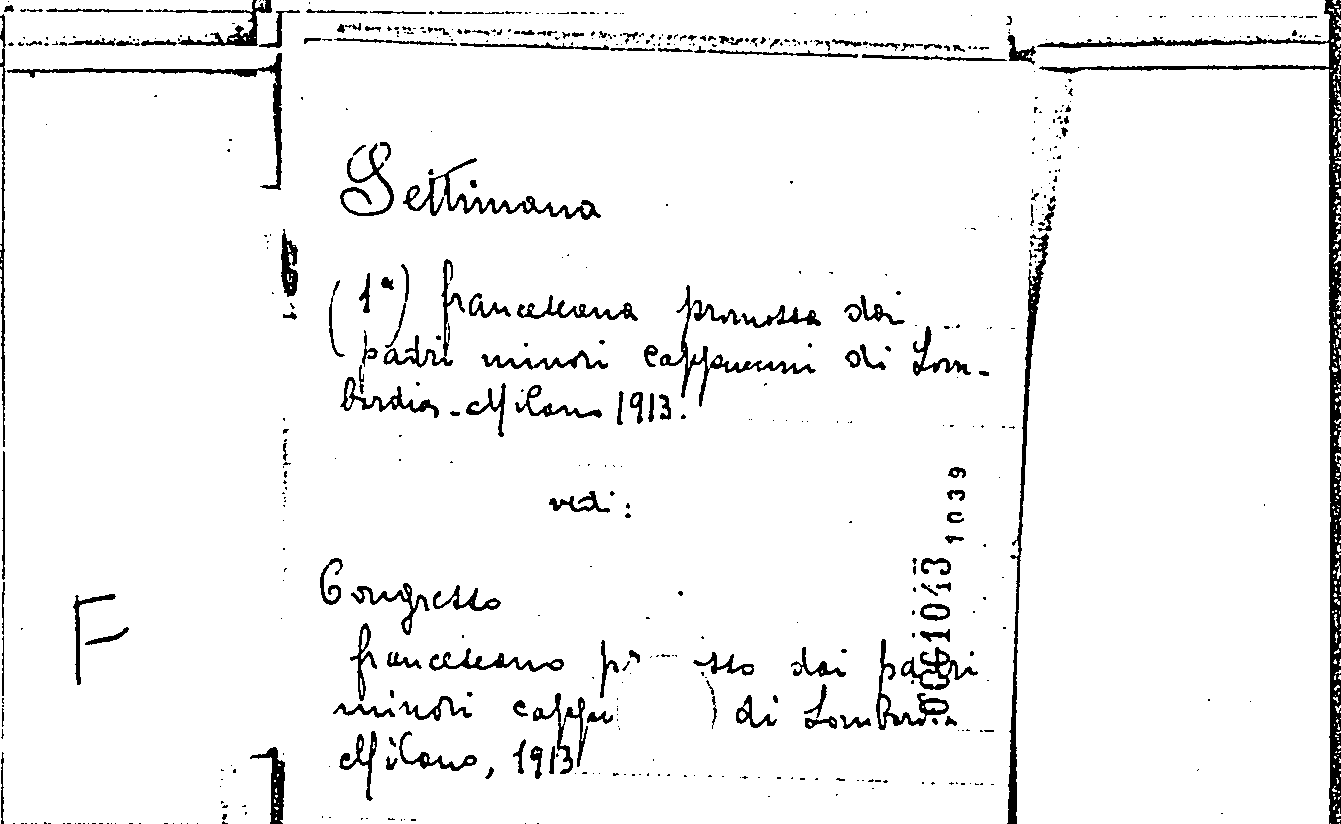 Settimana
(1ª) francescana promossa dai
padri minori cappuccini di Lom-
bardia - Milano 1913.
vedi:
Congresso
francescano dai padri
minori di Lombardia
Milano, 1913
F
1039